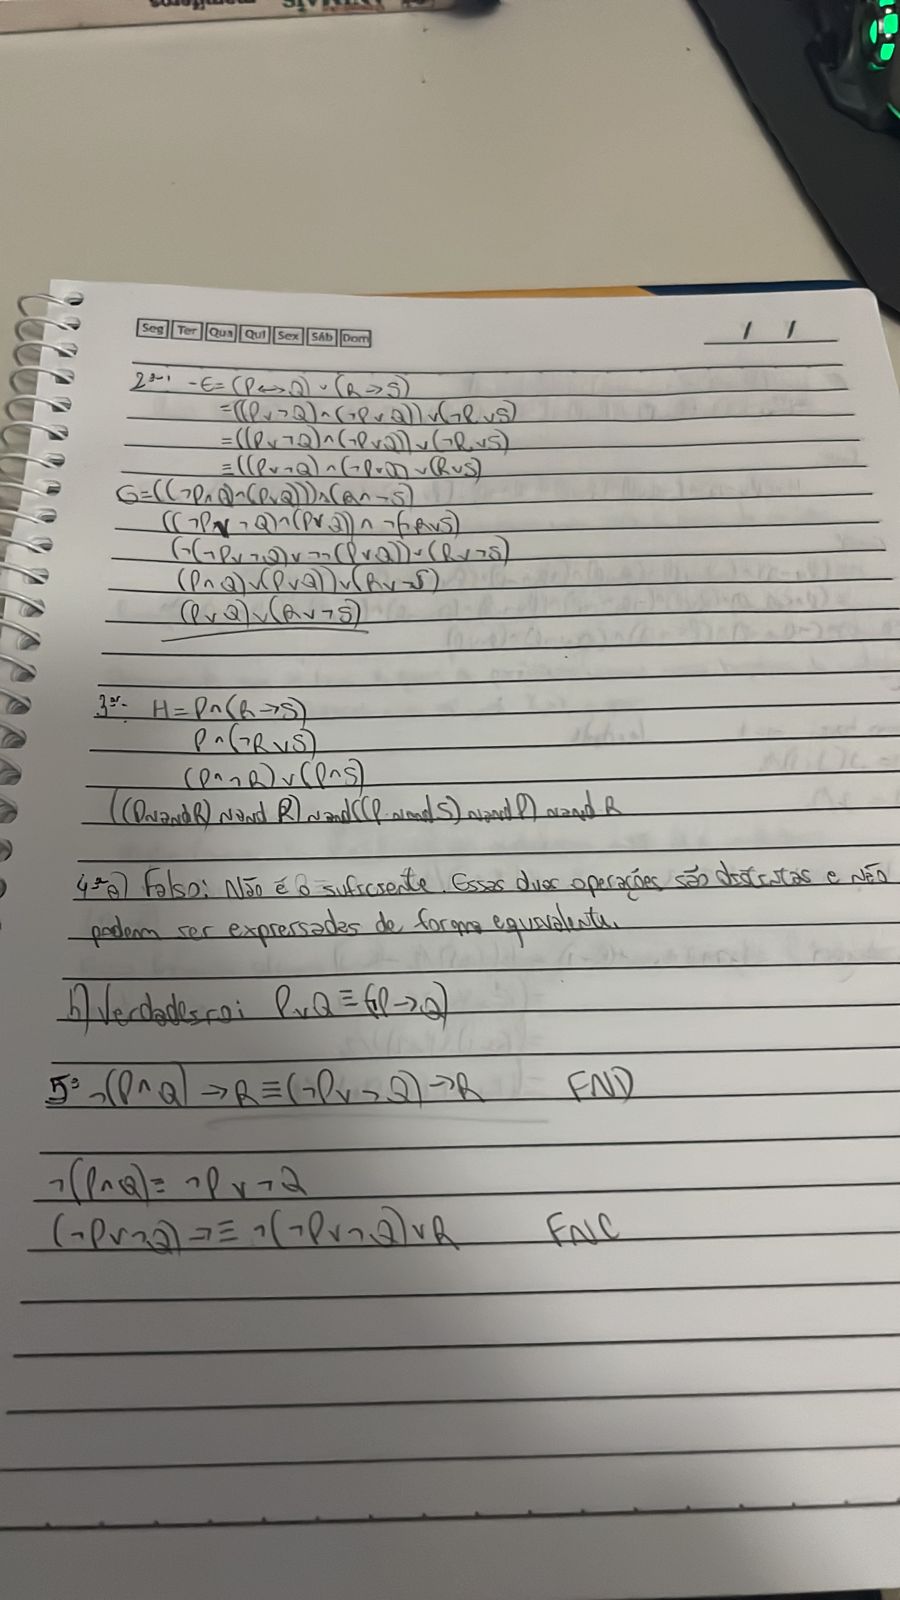 mamíferos
Seg Ter Qua Qui Sex Sáb Dom / /
2ª- E=(P↔Q)∨(R→S)
=((P∨¬Q)∧(¬P∨Q))∨(¬R∨S)
=((P∨¬Q)∧(¬P∨Q))∨(¬R∨S)
=((P∨¬Q)∧(¬P∨Q)∨(R∨S)
G=((¬P∧Q)∧(P∨Q)))∧(R∧¬S)
((¬P∨¬Q)∧(P∨Q))∧¬(¬R∨S)
(¬(¬P∨¬Q)∨¬¬(P∨Q))∨(R∨¬S)
(P∧Q)∨(P∨Q))∨(R∨¬S)
(P∨Q)∨(R∨¬S)
3ª- H=P∧(R→S)
P∧(¬R∨S)
(P∧¬R)∨(P∧S)
((PnandR) nand R) nand((P nand S) nand P) nand R
4ªa) Falso: Não é o suficiente. Essas duas operações são distintas e não
podem ser expressadas de forma equivalente.
b) Verdadeiro: P∨Q≡(¬P→Q)
5ª ¬(P∧Q)→R≡(¬P∨¬Q)→R FND
¬(P∧Q)≡¬P∨¬Q
(¬P∨¬Q)→≡¬(¬P∨¬Q)∨R FNC